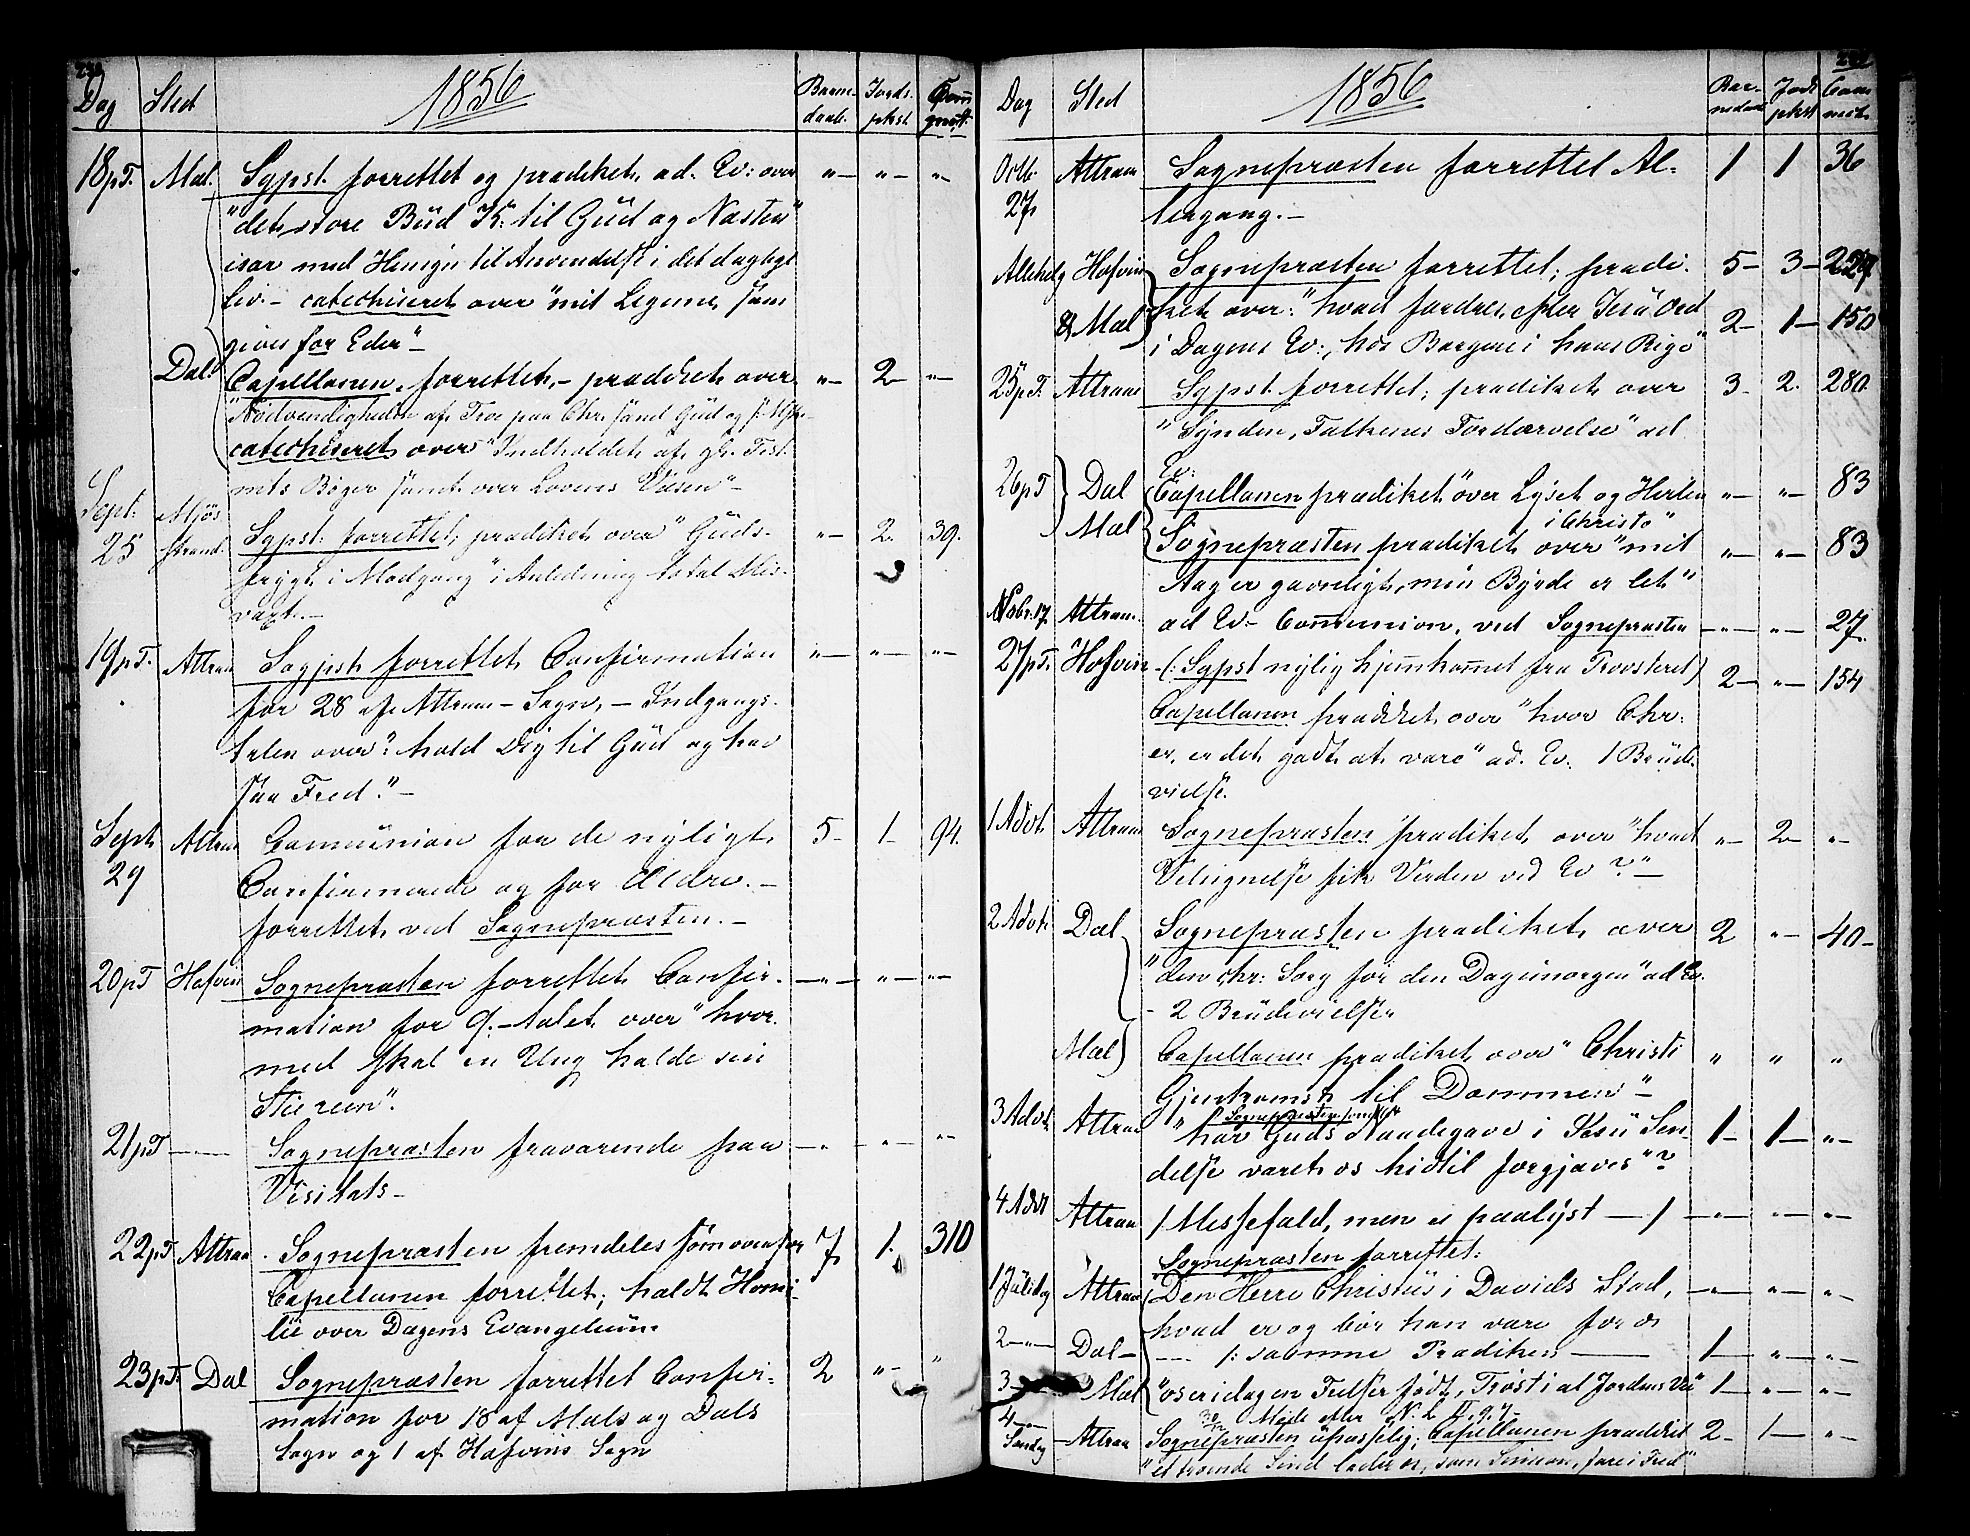 Dag Sted 1856 Barne- Jords- Com̅
daab. pkst. gnest.
18pT. Mæl. Sgpst. forrettet og prædiket ad. Ev: over "— "— "—
"det store Bud K: til Gud og Næsten"
især med Hensyn til Anvendelse i det daglige
Liv.— catechiseret over "mit Legeme som
gives for Eder"—
Dal. Capellanen forrettet,— prædiket over "— 2— "—
"Nödvendigheden af Troe paa Chr. sand Gud og
catechiseret over "Indholdet af gl. Test.
mts Bøger samt over Lovens Væsen"—
Sept. 25 Mjös strand. Sgpst. forrettet, prædiket over "Guds- "— 2. 39.
frygt i Modgang" i Anledning total Mis-
væxt.—
19pT. Attraa Sogpst. forrettet Confirmation "— "— "—
for 28 af Attraa— Sogn,— Indgangs-
talen over: hold Dig til Gud og hav
saa Fred."—
Sept 29 Attraa Communion for de nyligt 5— 1— 94.
Confirmerede og for Ældre.—
forrettet ved Sognepræsten.—
20pT Hofvin Sognepræsten forrettet Confir- —"— "— "—
mation for 9.—talet over "hvor-
med skal en Ung holde sin
Stie reen".
21pT —— Sognepræsten fraværende paa —"— "— "—
Visitats—
22pT. Attraa. Sognepræsten fremdeles som ovenfor 7 1. 310
Capellanen forrettet; holdt Homi-
lie over Dagens Evangelium.
23pT. Dal Sognepræsten forrettet Confir- 2 "— "
mation for 18 af Mæls og Dals
Sogn og 1 af Hofvins Sogn
Dag Sted 1856 Bar- Jord Com
nedaab pkst munic.
Octb. 27 Attraa Sognepræsten forrettet Al- 1 1 36
tergang.—
Allehelg Hofvin Sognepræsten forrettet; prædi- 5— 3—
& Mæl ket over: "hvad fordres efter Jesu Ord 2— 1— 150
i Dagens Ev:, hos Borgere i hans Rige"
25pT. Attraae Sgpst. forrettet; prædiket over 3— 2. 280.
"Synden, Folkenes Fordærvelse" ad
Ev:
26pT Dal Capellanen prædiket "over Lyset og Hvilen "— "— 83
i Christo"
Mæl Sognepræsten prædiket over "mit "— "— 83
Aag er gavnligt, min Byrde er let"
Novbr. 17. Attraa. ad Ev.— Communion, ved Sognepræsten —"— "— 27.
27pT. Hofvin (: Sgpst nylig hjemkommet fra Provsteret) 2— "— 154
Capellanen prædiket over "hvor Chr:
er, er det godt at være" ad. Ev: 1 Brude-
vielse.
1 Advt. Attraa Sognepræsten prædiket over "hvad "— 2— "—
Velsignelse fik Verden ved Ev?"—
2 Advt. Dal Sognepræsten prædiket over 2 "— 40—
"den chr: Sorg for den Dag imorgen" ad Ev.
— 2 Brudevielser
Mæl Capellanen prædiket over "Christi " " "
Gjenkomst til Dommen"—
Sognepræsten
3 Advt. Attraa "har Guds Naadegave i Jesu Sen- 1— 1— "—
delse været os hidtil forgjæves"?
4 Advt Attraa / Messefald, men ei paalyst — / —"— "— "—
Sognepræsten forrettet:
1 Juledag Attraa Den Herre Christus i Davids Stad, —"— "— "—
hvad er og bør han være for os
2—"— Dal— — /: samme Prædiken —— 1— "— "—
3— Mæl "os er idag en Frelser født, Trøst i al Jordens 1— "— "—
4—"— Søndag Attraa Sognepræsten upasselig; Capellanen prædiket 2— 1— "—
"et troende Sind lader os, som Simeon, fare i Fred"